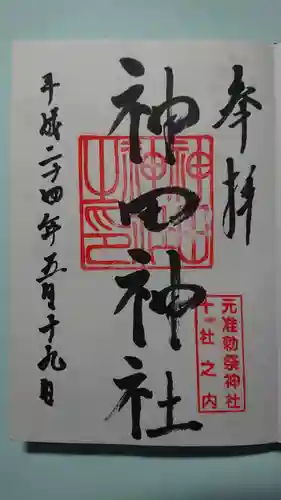 奉拝
神田神社
神田神社之印
元准勅祭神社
十社之内
平成二十四年五月十九日